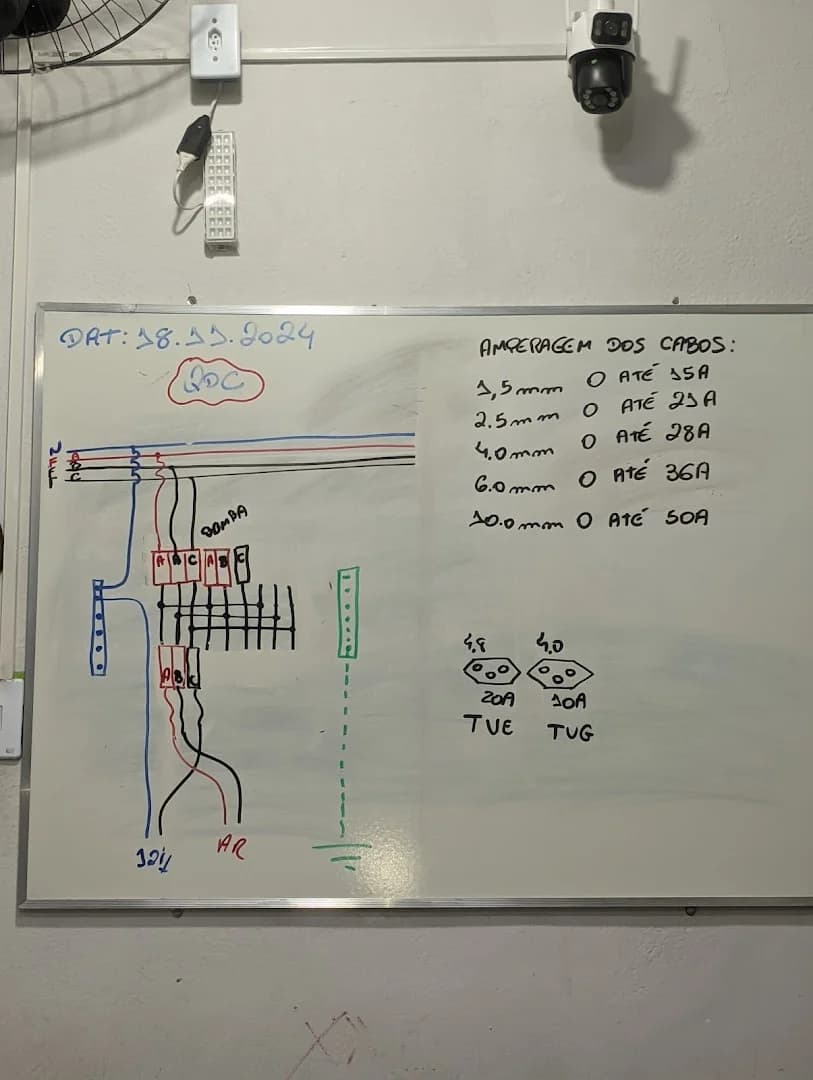 DAT: 18.11.2024
QDC
N
F A
F B
F C
BOMBA
A B C A B C
A B C
AR
AMPERAGEM DOS CABOS:
1,5mm O ATÉ 15A
2.5mm O ATÉ 21A
4.0mm O ATÉ 28A
6.0mm O ATÉ 36A
10.0mm O ATÉ 50A
4.8 4.0
20A 10A
TUE TUG